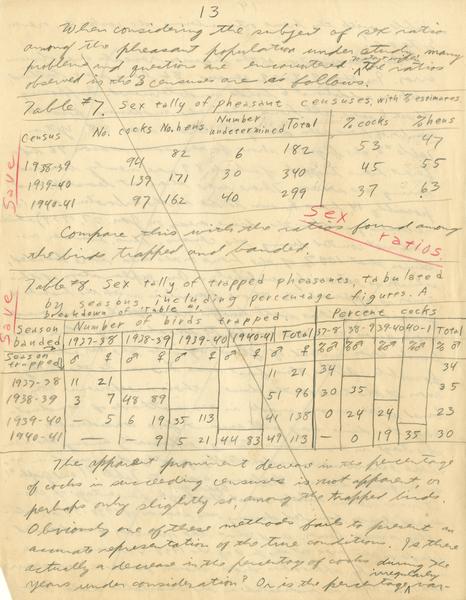 13
When considering the subject of sex ratio
among the pheasant population under study, many
problems and questions are encountered. The ratios
observed in the 3 censuses are as follows.
Table #7. Sex tally of pheasant censuses, with % estimates.
Census No. cocks No. hens Number undetermined Total % cocks % hens
1938-39 94 82 6 182 53 47
1939-40 139 171 30 340 45 55
1940-41 97 162 40 299 37 63
Save
Sex
ratios
Compare this with the ratios found among
the birds trapped and banded.
Table #8. Sex tally of trapped pheasants, tabulated
by seasons, including percentage figures. A
breakdown of Table
Save
Season banded Number of birds trapped Percent cocks
1937-38 1938-39 1939-40 1940-41 Total 37-8 38-9 39-40 40-1 Total
Season trapped ♂ ♀ ♂ ♀ ♂ ♀ ♂ ♀ ♂ ♀ %♂ %♂ %♂ %♂ % ♂
1937-38 11 21 11 21 34 34
1938-39 3 7 48 89 51 96 30 35 35
1939-40 — 5 6 19 35 113 41 138 0 24 24 23
1940-41 — — 9 5 21 44 83 49 113 — 0 19 35 30
The apparent prominent decrease in the percentage
of cocks in succeeding censuses is not apparent, or
perhaps only slightly so, among the trapped birds.
Obviously one of these methods fails to present an
accurate representation of the true conditions. Is there
actually a decrease in the percentage of cocks during the
years under consideration? Or is the percentage irregularly var-